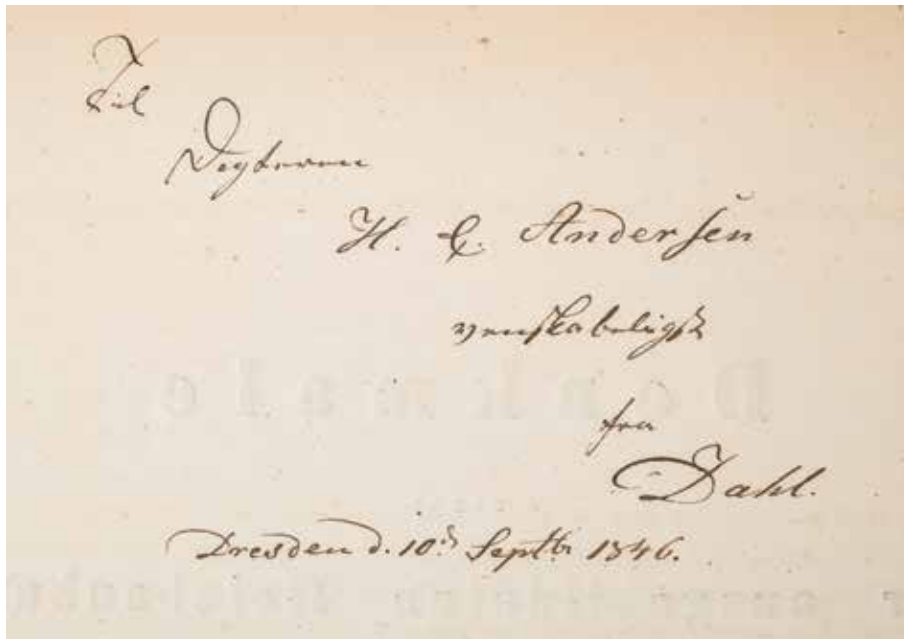 Til
Degteren
H. C. Andersen
venskabeligst
fra
Dahl.
Dresden d. 10d Septb. 1846.
Denkmale